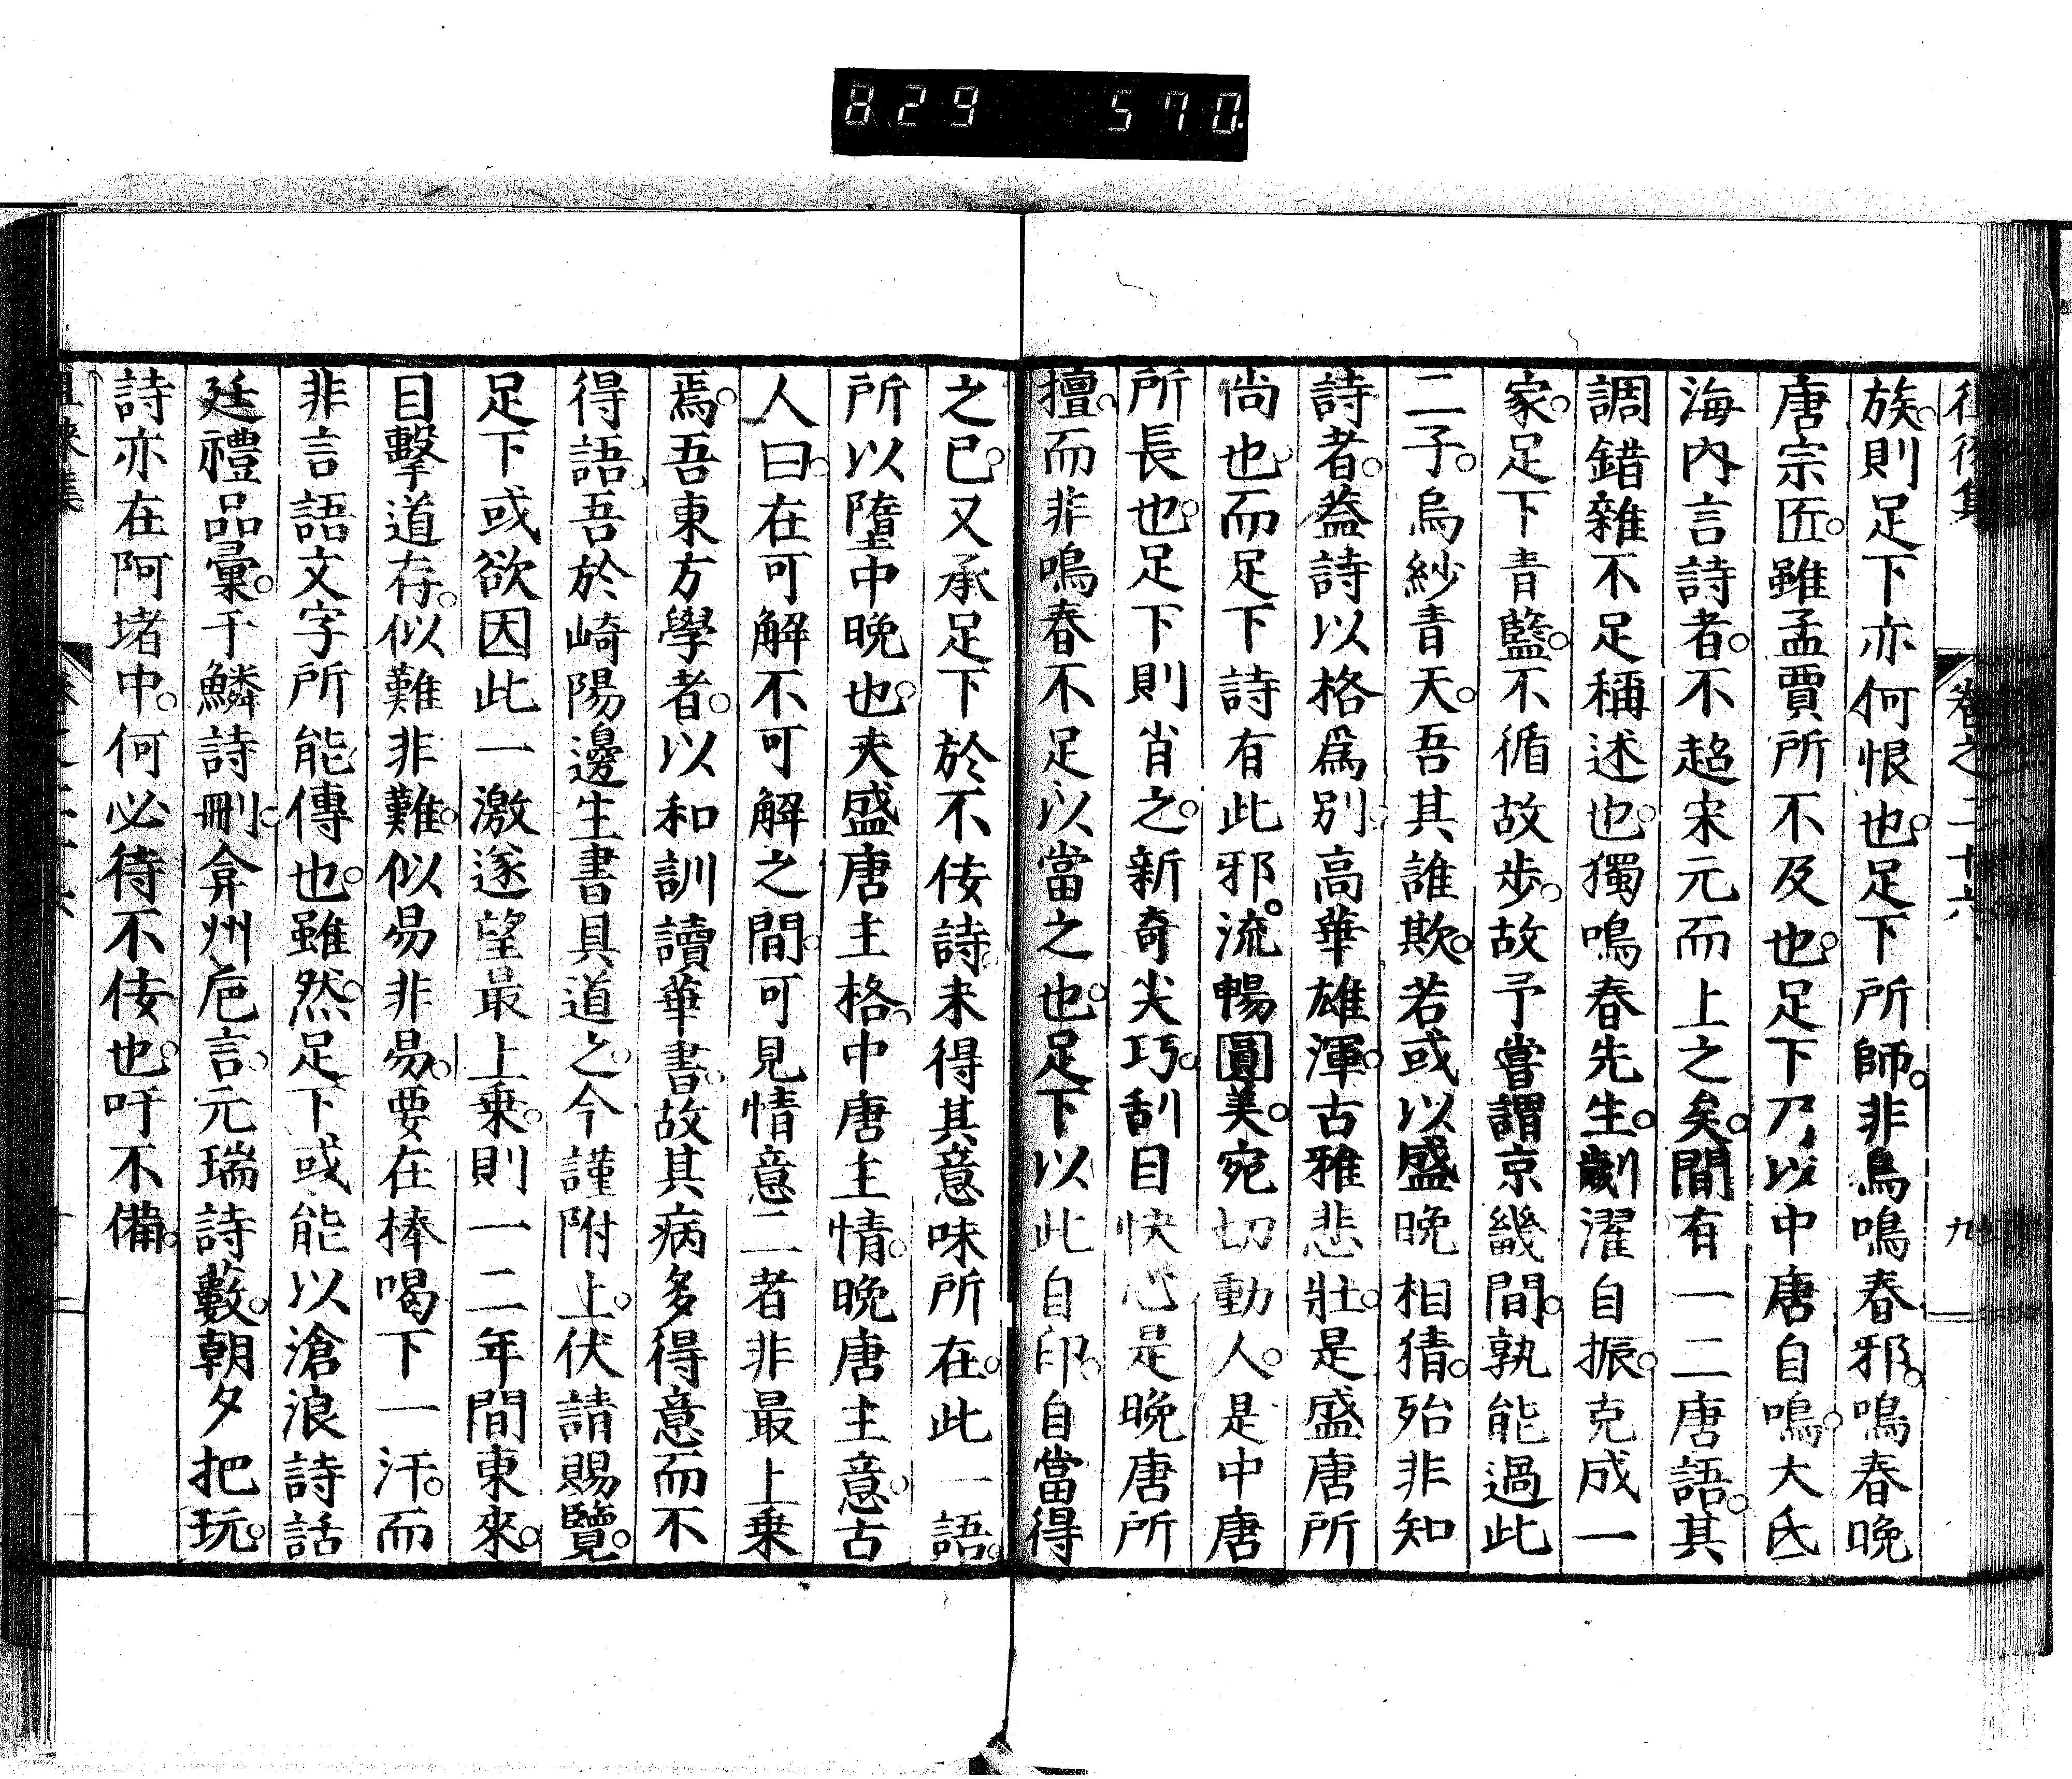 829 570
卷之二十六 九
族。則足下亦何恨也。足下所師。非鳥鳴春邪。鳴春晚
唐宗匠。雖孟賈所不及也。足下乃以中唐自鳴。大氐
海內言詩者。不超宋元而上之矣。間有一二唐語。其
調錯雜不足稱述也。獨鳴春先生。劌濯自振。克成一
家。足下青藍。不循故步。故予嘗謂京畿間。孰能過此
二子。烏紗青天。吾其誰欺。若或以盛晚相猜。殆非知
詩者。蓋詩以格爲別。高華雄渾。古雅悲壯。是盛唐所
尙也。而足下詩有此邪。流暢圓美。宛切動人。是中唐
所長也。足下則肖之。新奇尖巧。刮目快心。是晚唐所
擅。而非鳴春不足以當之也。足下以此自印。自當得
之已。又承足下於不佞詩。来得其意味所在。此一語。
所以墮中晚也。夫盛唐主格。中唐主情。晚唐主意。古
人曰。在可解不可解之間。可見情意二者非最上乗
焉。吾東方學者。以和訓讀華書。故其病多得意而不
得語。吾於崎陽邊生書具道之。今謹附上。伏請賜覽。
足下或欲因此一激遂望最上乗。則一二年間東來。
目擊道存。似難非難。似易非易。要在棒喝下一汗。而
非言語文字所能傳也。雖然。足下或能以滄浪詩話
廷禮品彙。于鱗詩刪。弇州巵言。元瑞詩藪。朝夕把玩。
詩亦在阿堵中。何必待不佞也。吁不備。